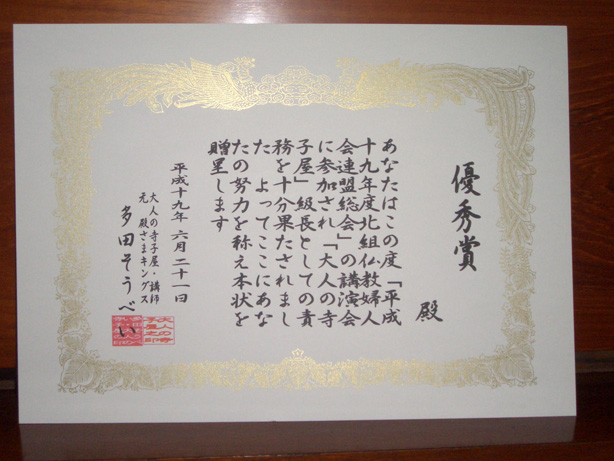 優秀賞
殿
あなたはこの度「平成
十九年度北組仏教婦人
会連盟総会」の講演会
に参加され「大人の寺
子屋」級長としての責
務を十分果たされまし
た よってここにあな
たの努力を称え本状を
贈呈します
平成十九年 六月二十一日
大人の寺子屋・講師
元 殿さまキングス
多田そうべい